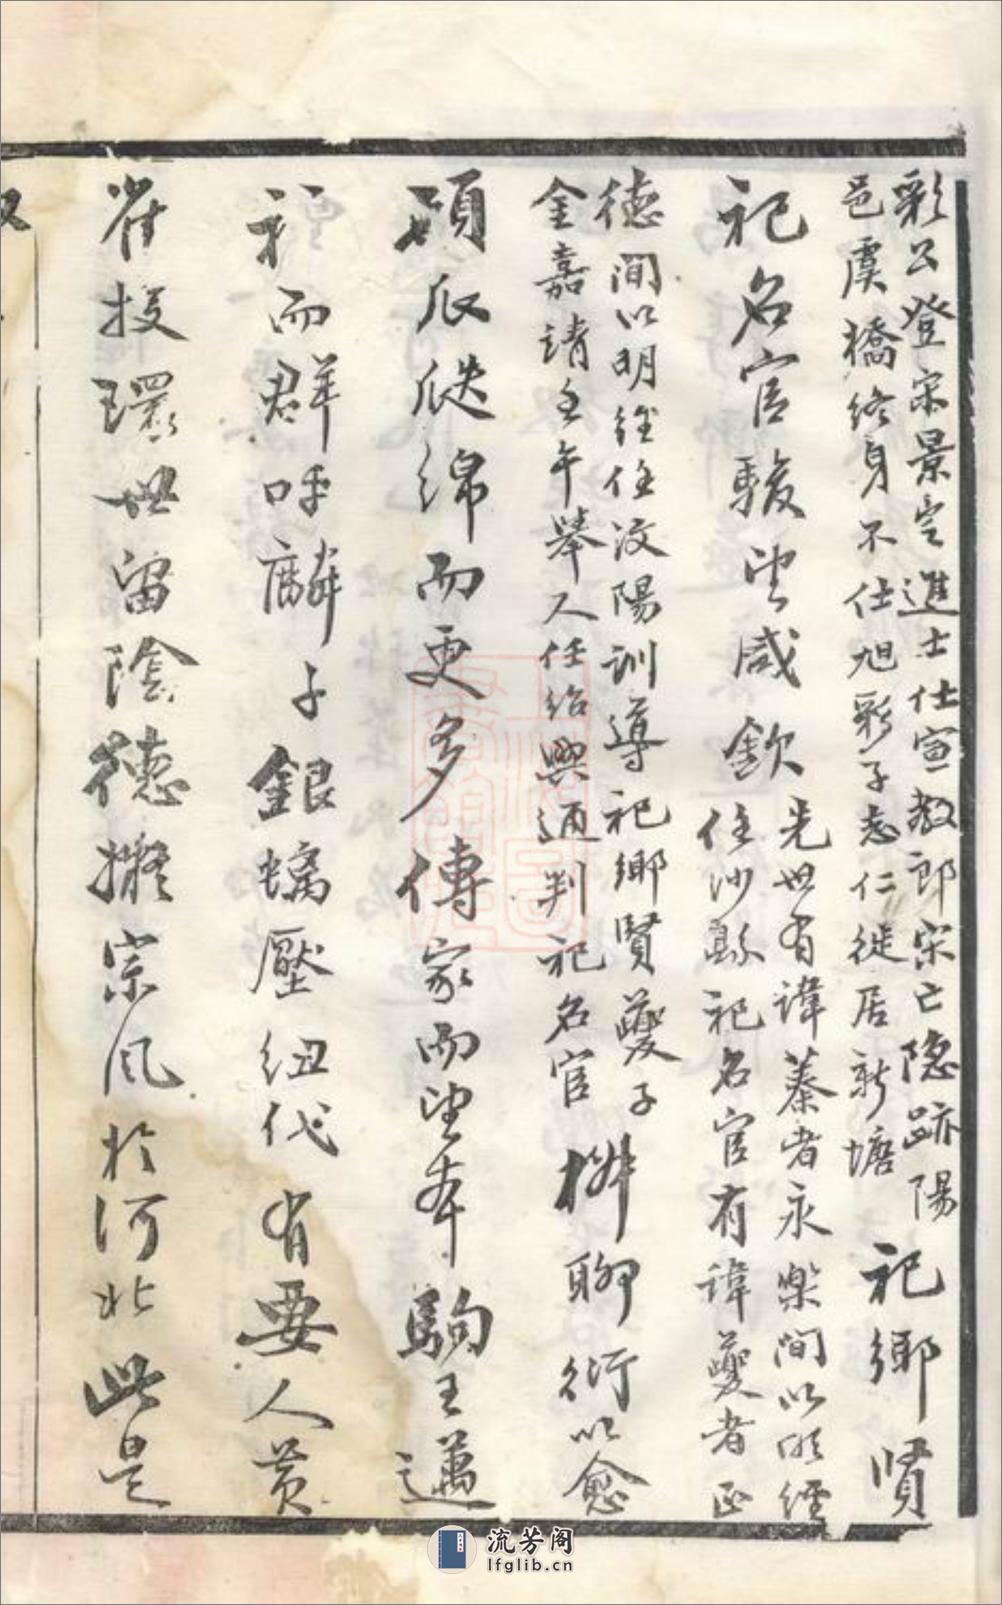 彩公登宋景定進士仕宣教郎宋亡隐跡陽
邑虞橋终身不仕旭彩子志仁徙居新塘
祀鄉賢
祀名宦駿望咸欽
先世有諱蓁者永樂間以明經
任沙縣祀名宦有諱夔者正
德間以明經任汶陽訓導祀鄉賢夔子
金嘉靖壬午舉人任紹興通判祀名宦
椒聊衍以愈
碩瓜瓞綿而更多傳家而望本駒王邁
種而群呼麟子銀螭壓纽代有要人黄
雀投環世留陰德擬宗风於河北此是
流芳阁
lfglib.cn